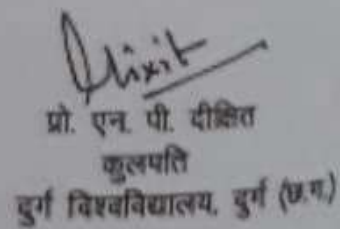 Dixit
प्रो. एन. पी. दीक्षित
कुलपति
दुर्ग विश्वविद्यालय, दुर्ग (छ.ग.)